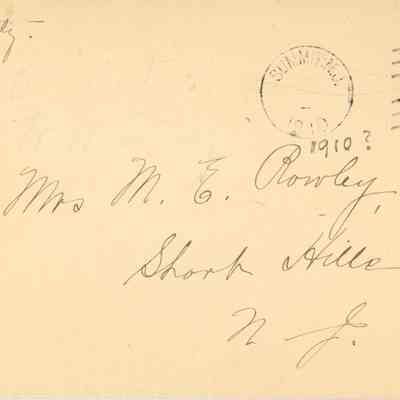 SUMMIT N.J.
1910
1910?
Mrs M. E. Rowley,
Short Hills
N J.